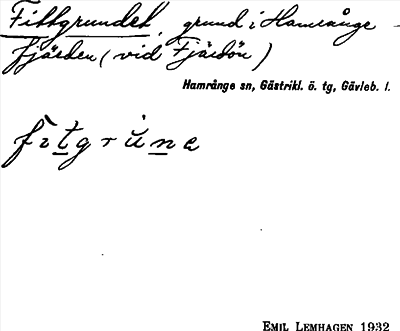 Fittgrundet, grund i Hamrånge-
fjärden (vid Fjärdön)
Hamrånge sn, Gästrikl. ö. tg, Gävleb. l.
fìt̲grùn̲e
EMIL LEMHAGEN 1932